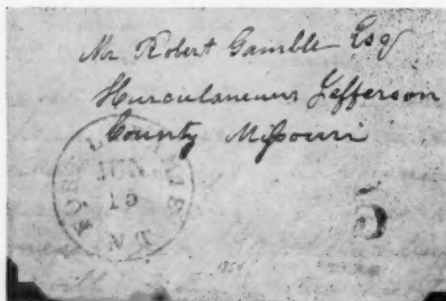 Mr Robert Gamble Esq
Hurculaneum Jefferson
County Missouri
FORT LARAMIE
JUN
19
N.T.
5